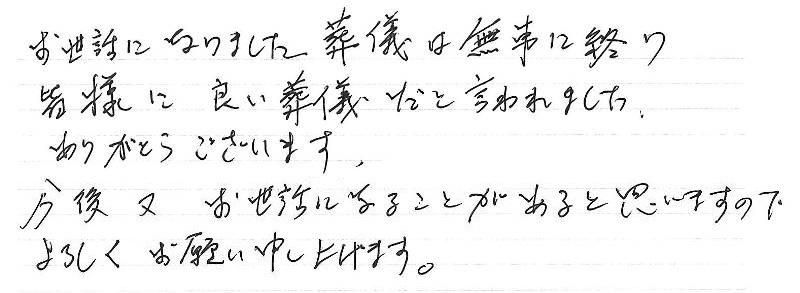 お世話になりました 葬儀は無事に終り
皆様に 良い葬儀だと言われました.
ありがとうございます.
今後又 お世話になることがあると思いますので
よろしくお願い申し上げます。